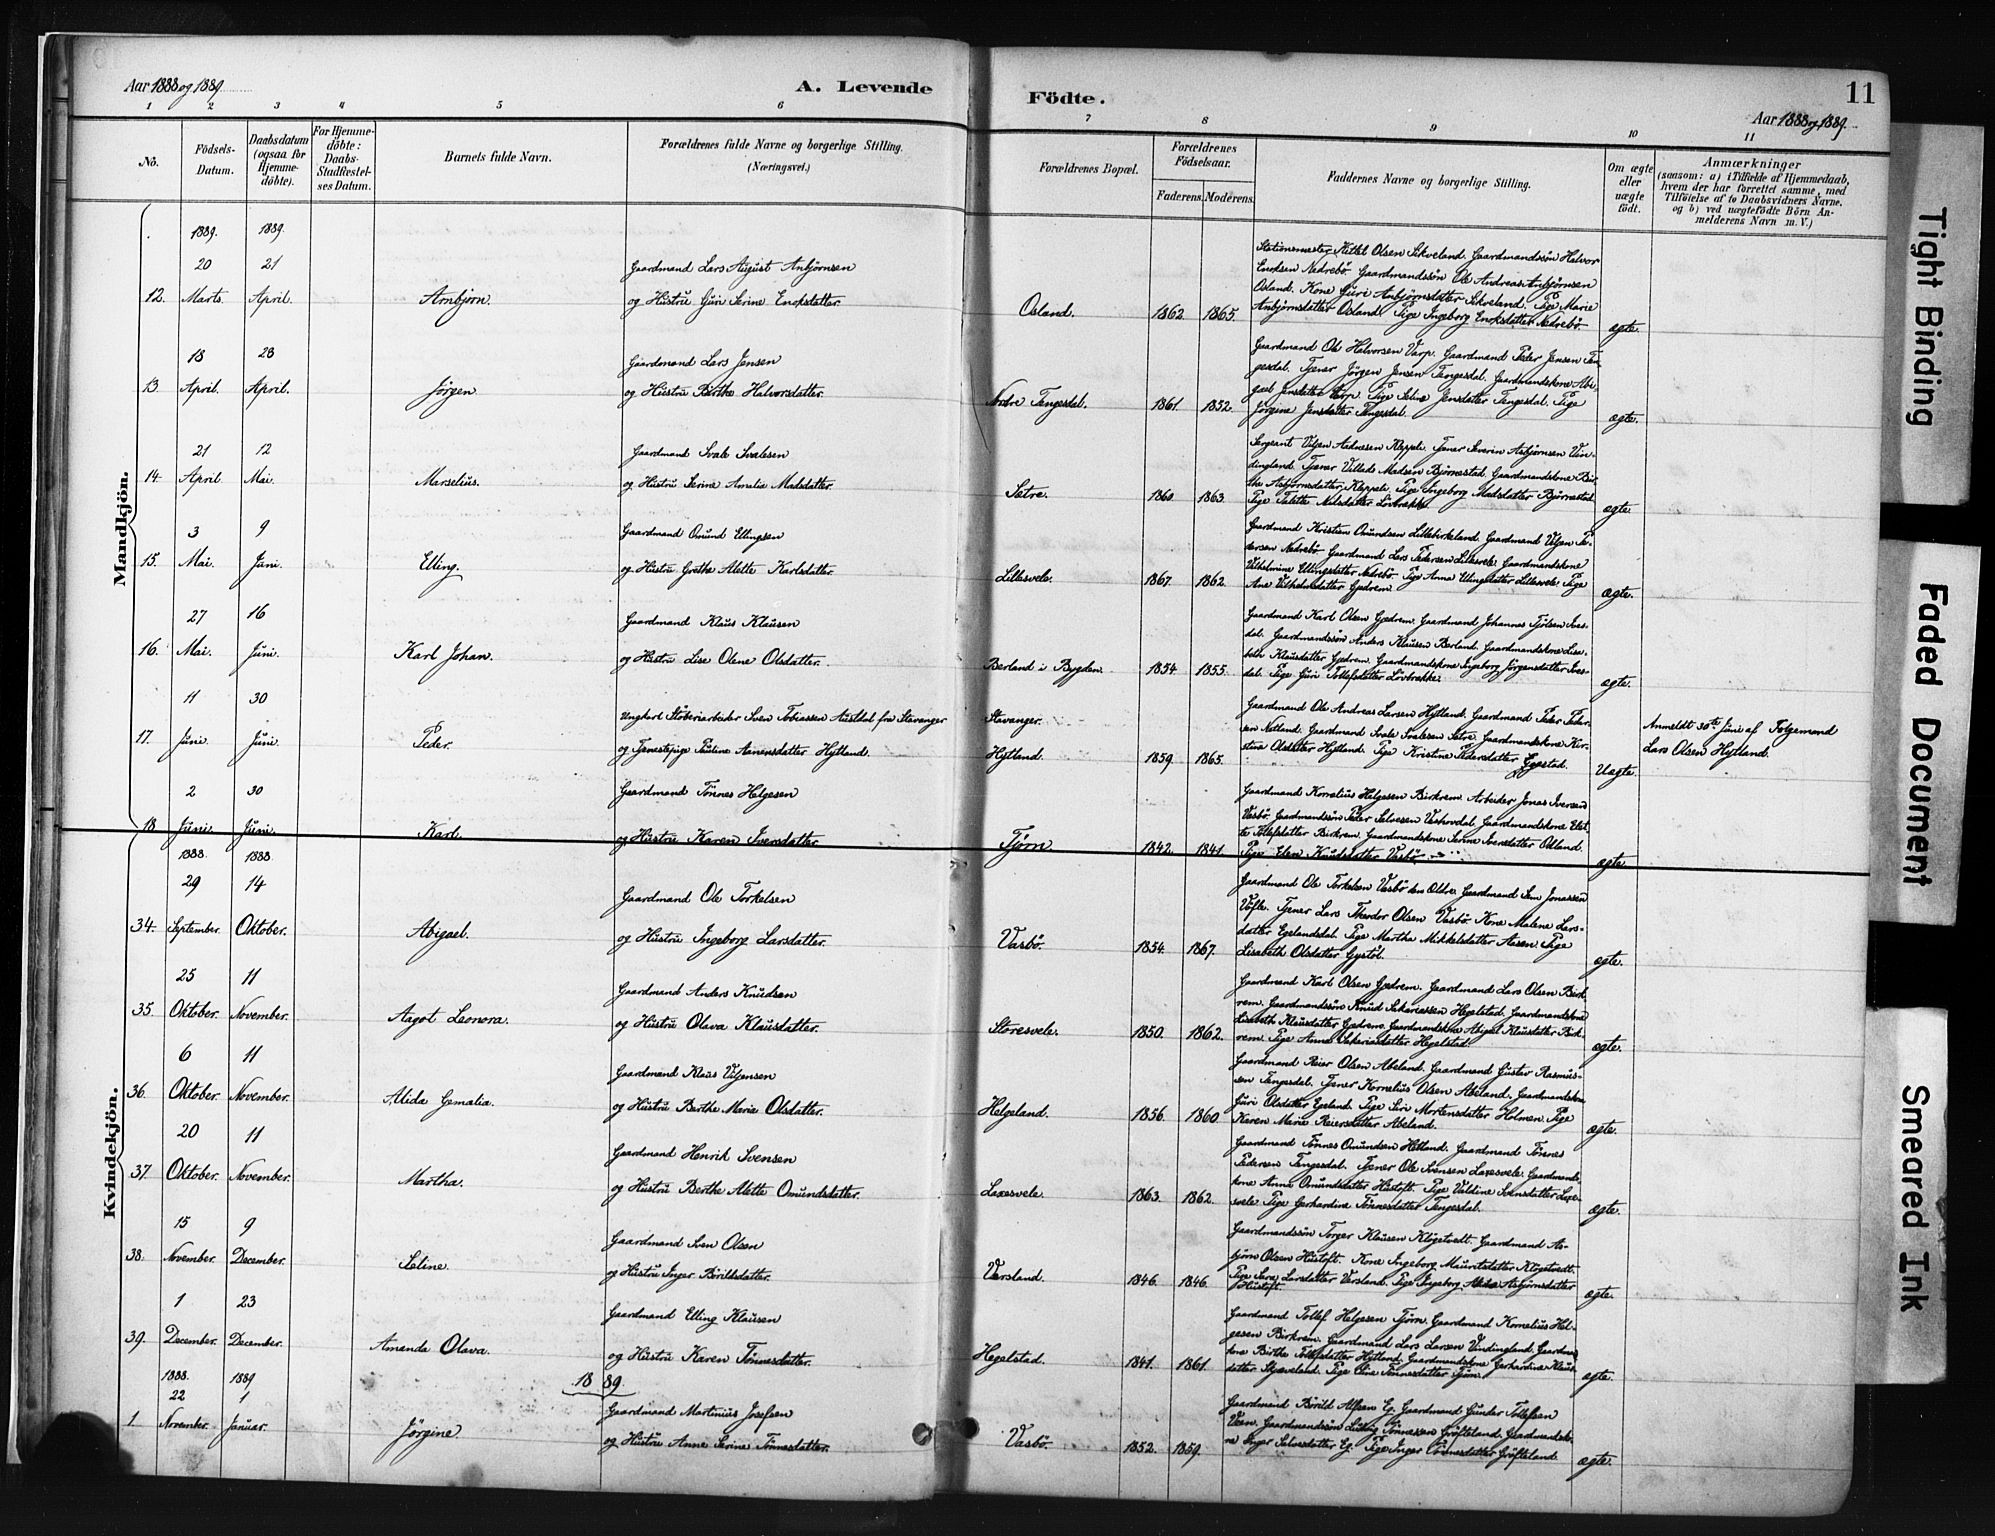 Aar 1888 og 1889
A. Levende
Födte.
11
Aar 1888 og 1889.
1 2 3 4 5 6 7 8 9 10 11
No.
Födsels-Datum.
Daabsdatum (ogsaa for Hjemme-döbte).
For Hjemme-döbte: Daabs-Stadfæstel-ses Datum.
Barnets fulde Navn.
Forældrenes fulde Navne og borgerlige Stilling.
(Næringsvei.)
Forældrenes Bopæl.
Forældrenes Födselsaar.
Faderens. Moderens.
Faddernes Navne og borgerlige Stilling.
Om ægte eller uægte födt.
Anmærkninger
(saasom: a) i Tilfælde af Hjemmedaab,
hvem der har forrettet samme, med
Tilföielse af to Daabsvidners Navne.
og b) ved uægtefödte Börn An-
melderens Navn m. V.)
Mandkjön.
1889. 1889.
20 21 Gaardmand Lars August Anbjørnsen
12. Marts. April. Arnbjørn. og Hustru Guri Serine Enoksdatter. Osland. 1862. 1865. ægte.
Stationsmester Kittel Olsen Sikveland. Gaardmandssøn Halvor
Enoksen Nedrebö. Gaardmandssøn Ole Andreas Anbjørnsen
Osland. Kone Guri Anbjørnsdatter Sikveland. Pige Marie
Anbjørnsdatter Osland. Pige Ingeborg Enoksdatter Nedrebö
18 28 Gaardmand Lars Jensen
13. April. April. Jørgen og Hustru Berthe Halvorsdatter. Nedre Tengesdal. 1861. 1852. ægte.
Gaardmand Ole Halvorsen Varp. Gaardmand Peder Jensen Ten-
gesdal. Tjener Jörgen Jensen Tengesdal. Gaardmandskone Abi-
gael Jensdatter Varp. Pige Seline Jensdatter Tengesdal. Pige
Jörgine Jensdatter Tengesdal.
21 12 Gaardmand Svale Svalesen
14. April Mai. Marselius. og Hustru Serine Amalia Madsdatter. Setre. 1860 1863. ægte.
Sergeant Viljen Aadnesen Kleppeli. Tjener Severin Asbjørnsen Vin-
dingland. Tjener Villads Madsen Bjørnestad. Gaardmandskone Bir-
the Asbjørnsdatter Kleppeli. Pige Ingeborg Madsdatter Bjørnestad
Pige Talette Nilsdatter Lövbrække
3 9 Gaardmand Omund Ellingsen
15. Mai. Juni. Elling. og Hustru Grethe Alette Karlsdatter. Lillesvele. 1867. 1862. ægte.
Gaardmand Kristian Omundsen Lillebirkeland. Gaardmand Viljen Pe-
dersen Nedrebö. Gaardmand Lars Pedersen Lillesvele. Gaardmandskone
Vilhelmine Ellingsdatter Nedrebö. Pige Anna Ellingsdatter Lillesvele. Pige
Ane Vilhelmsdatter Gjedrem.
27 16 Gaardmand Klaus Klausen
16. Mai. Juni. Karl Johan. og Hustru Lise Olene Olsdatter. Berland i Bygden. 1854 1855. ægte.
Gaardmand Karl Olsen Gjedrem. Gaardmand Johannes Tjölsen Ives-
dal. Gaardmandssøn Anders Klausen Berland. Gaardmandskone Lise-
beth Klausdatter Gjedrem. Gaardmandskone Ingeborg Jörgensdatter Ives-
dal. Pige Guri Tollefsdatter Lövbrække.
11 30 Ungkarl Stöberiarbeider Sven Tobiassen Austdal fra Stavanger Stavanger.
17. Juni. Juni. Peder. og Tjenestepige Pauline Aanensdatter Hytland. Hytland. 1859. 1865. Uægte.
Gaardmand Ole Andreas Larsen Hytland. Gaardmand Peder Peder-
sen Netland. Gaardmand Svale Svalesen Setre. Gaardmandskone Kir-
stine Olsdatter Hytland. Pige Kristine Pedersdatter Egestad.
Anmeldt 30te Juni af Folgemand
Lars Olsen Hytland.
2 30 Gaardmand Tönnes Helgesen
18. Juni. Juni. Karl. og Hustru Karen Iversdatter Tjörn. 1842. 1841 ægte.
Gaardmand Kornelius Helgesen Birkrem. Arbeider Jonas Iversen
Vasbö. Gaardmandssøn Peder Salvesen Vashovdal. Gaardmandskone Elet-
te Tollefsdatter Birkrem. Gaardmandskone Serine Iversdatter Odland.
Pige Elen Knudsdatter Vasbö
Kvindekjön.
1888. 1888.
29 14 Gaardmand Ole Torkelsen
34. September. Oktober. Abigael. og Hustru Ingeborg Larsdatter. Vasbö. 1854. 1867. ægte.
Gaardmand Ole Torkelsen Vasbö den Eldre. Gaardmand Sem Jonassen
Tjener Lars Theodor Olsen Vasbö. Kone Malene Lars-
datter Egelandsdal. Pige Martha Mikkelsdatter Aasen. Pige
Lisabeth Olsdatter Gystöl.
25 11 Gaardmand Anders Knudsen
35. Oktober. November. Aagot Leonora. og Hustru Olava Klausdatter. Storesvele. 1850. 1862. ægte.
Gaardmand Karl Olsen Gjedrem. Gaardmand Lars Olsen Birk-
rem. Gaardmandssøn Knud Sakariassen Hegelstad. Gaardmandskone
Lisabeth Klausdatter Gjedrem. Gaardmandskone Abigael Klausdatter Birk-
rem. Pige Anna Sakariasdatter Hegelstad
6 11 Gaardmand Klaus Viljensen
36. Oktober. November. Alida Gemalia. og Hustru Berthe Marie Olsdatter. Helgeland. 1856. 1860 ægte.
Gaardmand Reier Olsen Abeland. Gaardmand Gustav Rasmus-
sen Tengesdal. Tjener Kornelius Olsen Abeland. Gaardmandskone
Guri Olsdatter Egeland. Pige Siri Mortensdatter Holmen. Pige
Karen Marie Reiersdatter Abeland.
20 11 Gaardmand Henrik Svensen
37. Oktober. November. Martha. og Hustru Berthe Alette Omundsdatter. Laxesvele. 1863. 1862. ægte.
Gaardmand Tönnes Omundsen Hetland. Gaardmand Tönnes
Pedersen Tengesdal. Tjener Ole Svensen Laxesvele. Gaardmands-
kone Anna Omundsdatter Hustoft. Pige Valdine Svensdatter Laxe-
svele. Pige Gerhardine Tönnesdatter Tengesdal.
15 9 Gaardmand Sven Olsen
38. November. December. Seline. og Hustru Inger Börildsdatter. Versland. 1846. 1846. ægte.
Gaardmandssøn Torger Klausen Klögetvedt. Gaardmand As-
björn Olsen Hustoft. Kone Ingeborg Mauritsdatter Klögetvedt.
Pige Sara Larsdatter Versland. Pige Ingeborg Asbjørnsdatter
Hustoft.
1 23 Gaardmand Elling Klausen
39. December. December. Amanda Olava. og Hustru Karen Tönnesdatter. Hegelstad. 1841. 1861. ægte.
Gaardmand Tollef Helgesen Tjörn. Gaardmand Kornelius Hel-
gesen Birkrem. Gaardmand Lars Larsen Vindingland. Gaardmands-
kone Birthe Tollefsdatter Hytland. Gaardmandskone Gerhardina Klaus-
datter Skjæveland. Pige Oline Tönnesdatter Tjörn.
1888. 1889 1889
22 1 Gaardmand Martinius Josefsen
1 November. Januar. Jörgine. og Hustru Anne Serine Tönnesdatter. Vasbö. 1852. 1859. ægte.
Gaardmand Börild Alfsen Eg. Gaardmand Gunder Tollefsen
Veen. Gaardmandssøn Ludvig Tönnessen Gröfteland. Gaardmandsko-
ne Inger Salvesdatter Eg. Pige Inger Tönnesdatter Gröfteland
Tight Binding
Faded Document
Smeared Ink